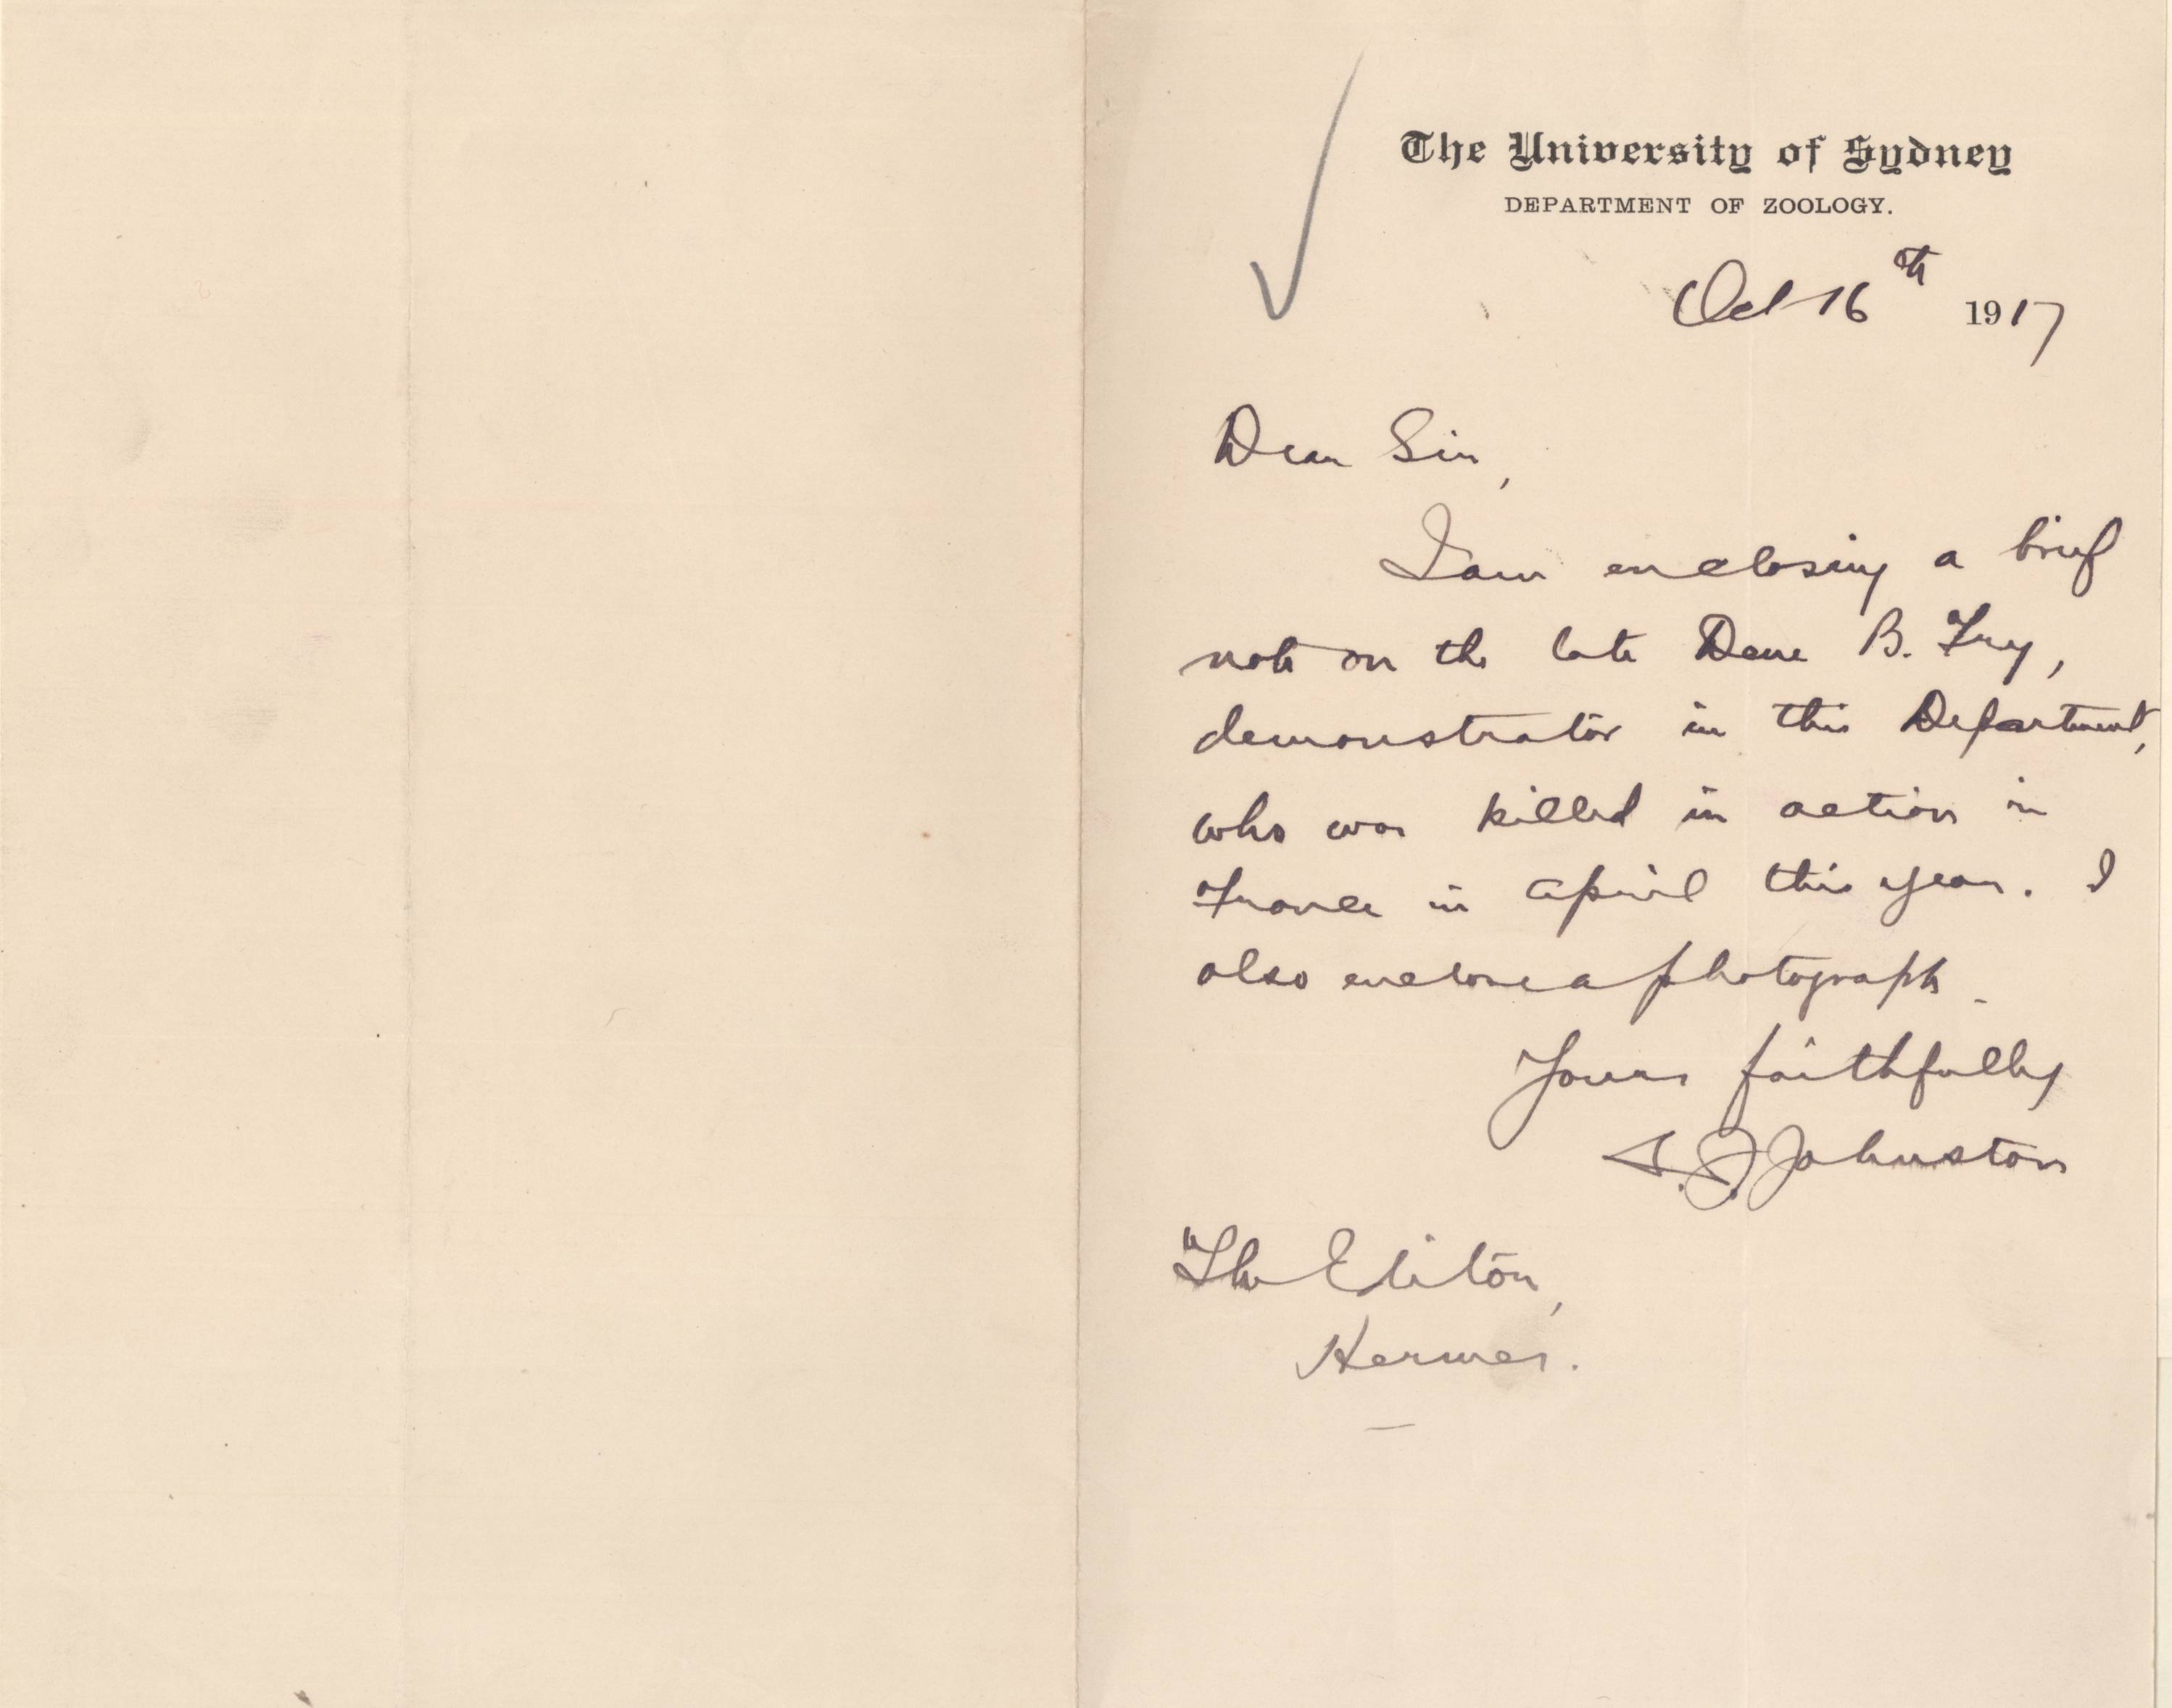 The University of Sydney
DEPARTMENT OF ZOOLOGY.
Oct 16th 1917
Dear Sir,
I am enclosing a brief
note on the late Dene B. Fry,
demonstrator in this Department,
who was killed in action in
France in April this year. I
also enclose a photograph.
Yours faithfully
S. J. Johnston
The Editor,
Hermes.